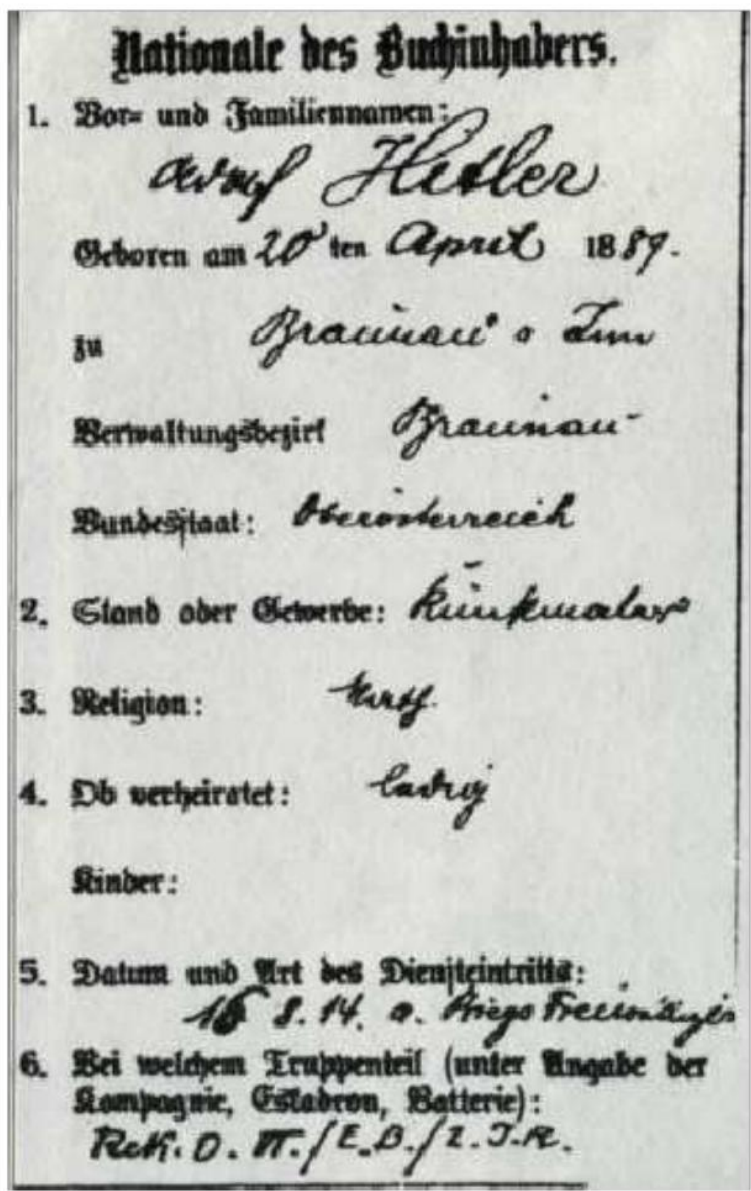 Nationale des Buchinhabers.
1. Vor= und Familiennamen:
Adolf Hitler
Geboren am 20 ten April 1889.
zu Braunau a Inn
Verwaltungsbezirk Braunau
Bundesstaat: Oberösterreich
2. Stand oder Gewerbe: Kunstmaler
3. Religion: kath.
4. Ob verheiratet: ledig
Kinder:
5. Datum und Art des Diensteintritts:
16 8. 14. a. Kriegsfreiwilliger
6. Bei welchem Truppenteil (unter Angabe der
Kompagnie, Eskadron, Batterie):
Rek. D. VI./E.B./2. I.R.